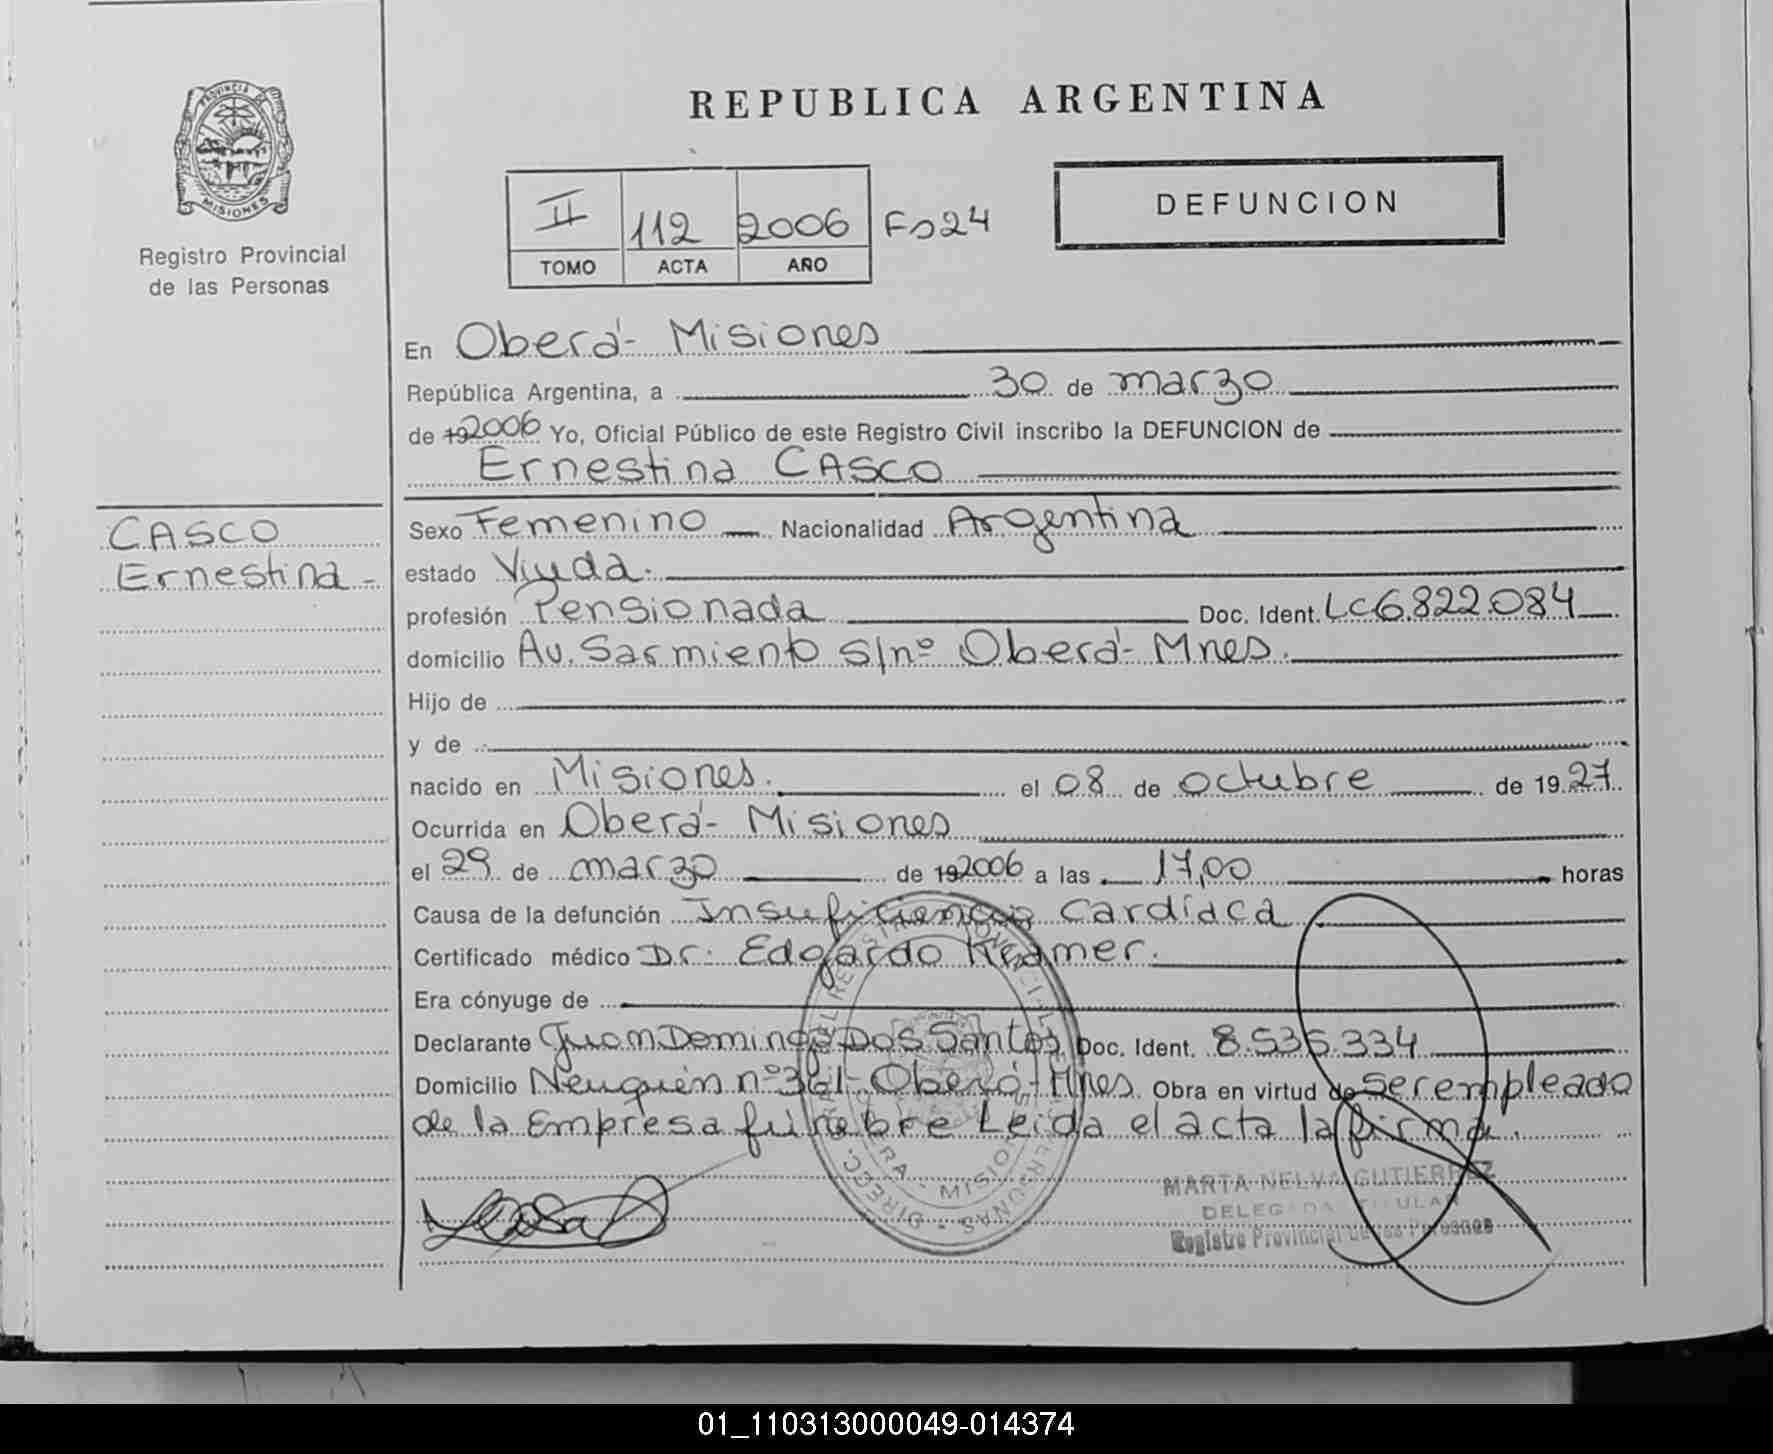 PROVINCIA DE
MISIONES
Registro Provincial
de las Personas
REPUBLICA ARGENTINA
II 112 2006 Fº24
TOMO ACTA AÑO
DEFUNCION
En Oberá - Misiones
República Argentina, a 30 de marzo
de 192006 Yo, Oficial Público de este Registro Civil inscribo la DEFUNCION de
Ernestina CASCO
CASCO
Ernestina -
Sexo Femenino Nacionalidad Argentina
estado Viuda.
profesión Pensionada Doc. Ident. LC6.822.084
domicilio Av. Sarmiento s/nº Oberá - Mnes.
Hijo de
y de
nacido en Misiones. el 08 de octubre de 1927
Ocurrida en Oberá - Misiones
el 29 de marzo de 192006 a las 17,00 horas
Causa de la defunción Insuficiencia Cardíaca
Certificado médico Dr. Edgardo Kramer.
Era cónyuge de
Declarante Juan Domingo Dos Santos Doc. Ident. 8.535.334
Domicilio Neuquén nº 361 - Oberá - Mnes. Obra en virtud de ser empleado
de la Empresa fúnebre Leida el acta la firma.
MARTA NELVA GUTIERREZ
DELEGADA TITULAR
Registro Provincial de las Personas
01_110313000049-014374